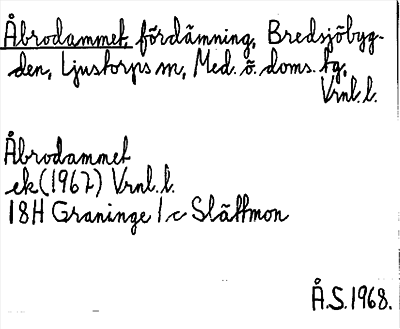 Åbrodammet, fördämning, Bredsjöbyg-
den, Ljustorps sn, Med. ö. doms. tg,
Vrnl. l.
Åbrodammet
ek (1967) Vrnl. l.
18H Graninge 1 c Slättmon
Å.S. 1968.